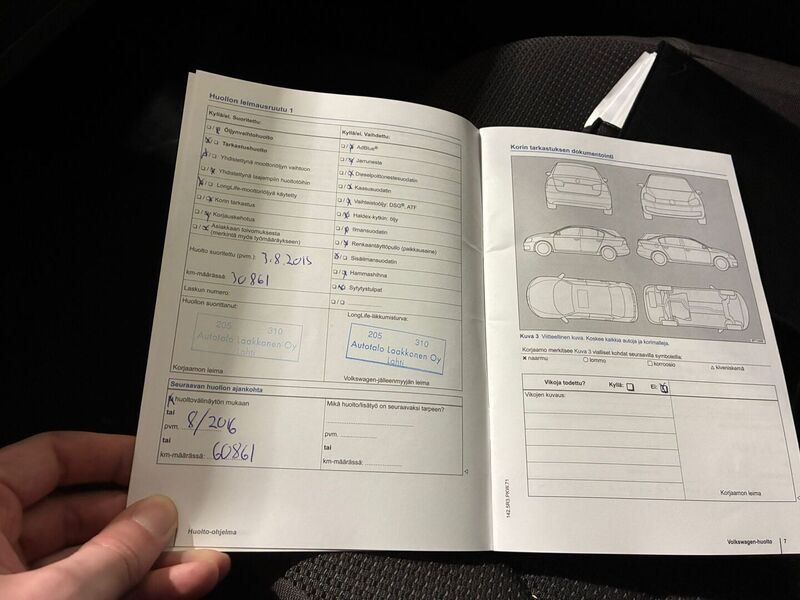 Huollon leimausruutu 1
Kyllä/ei. Suoritettu:
Öljynvaihtohuolto
Tarkastushuolto
Yhdistettynä moottoriöljyn vaihtoon
Yhdistettynä laajempiin huoltotöihin
LongLife-moottoriöljyä käytetty
Korin tarkastus
Korjauskehotus
Asiakkaan toivomuksesta
(merkintä myös työmääräykseen)
Huolto suoritettu (pvm.): 3.8.2015
km-määrässä: 30861
Laskun numero:
Huollon suorittanut:
205 310
Autotalo Laakkonen Oy
Lahti
Korjaamon leima
Kyllä/ei. Vaihdettu:
AdBlue®
Jarruneste
Dieselpolttonestesuodatin
Kaasusuodatin
Vaihteistoöljy: DSG®, ATF
Haldex-kytkin: öljy
Ilmansuodatin
Renkaantäyttöpullo (paikkausaine)
Sisäilmansuodatin
Hammashihna
Sytytystulpat
LongLife-liikkumisturva:
205 310
Autotalo Laakkonen Oy
Lahti
Volkswagen-jälleenmyyjän leima
Seuraavan huollon ajankohta
huoltovälinäytön mukaan
tai
pvm. 8/2016
tai
km-määrässä: 60861
Mikä huolto/lisätyö on seuraavaksi tarpeen?
pvm.
tai
km-määrässä:
Huolto-ohjelma
Korin tarkastuksen dokumentointi
Kuva 3 Viitteellinen kuva. Koskee kaikkia autoja ja korimalleja.
Korjaamo merkitsee Kuva 3 vialliset kohdat seuraavilla symboleilla:
x naarmu ○ lommo □ korroosio △ kiveniskemä
Vikoja todettu? Kyllä: Ei:
Vikojen kuvaus:
Korjaamon leima
142.5R3.PKW.71
Volkswagen-huolto 7